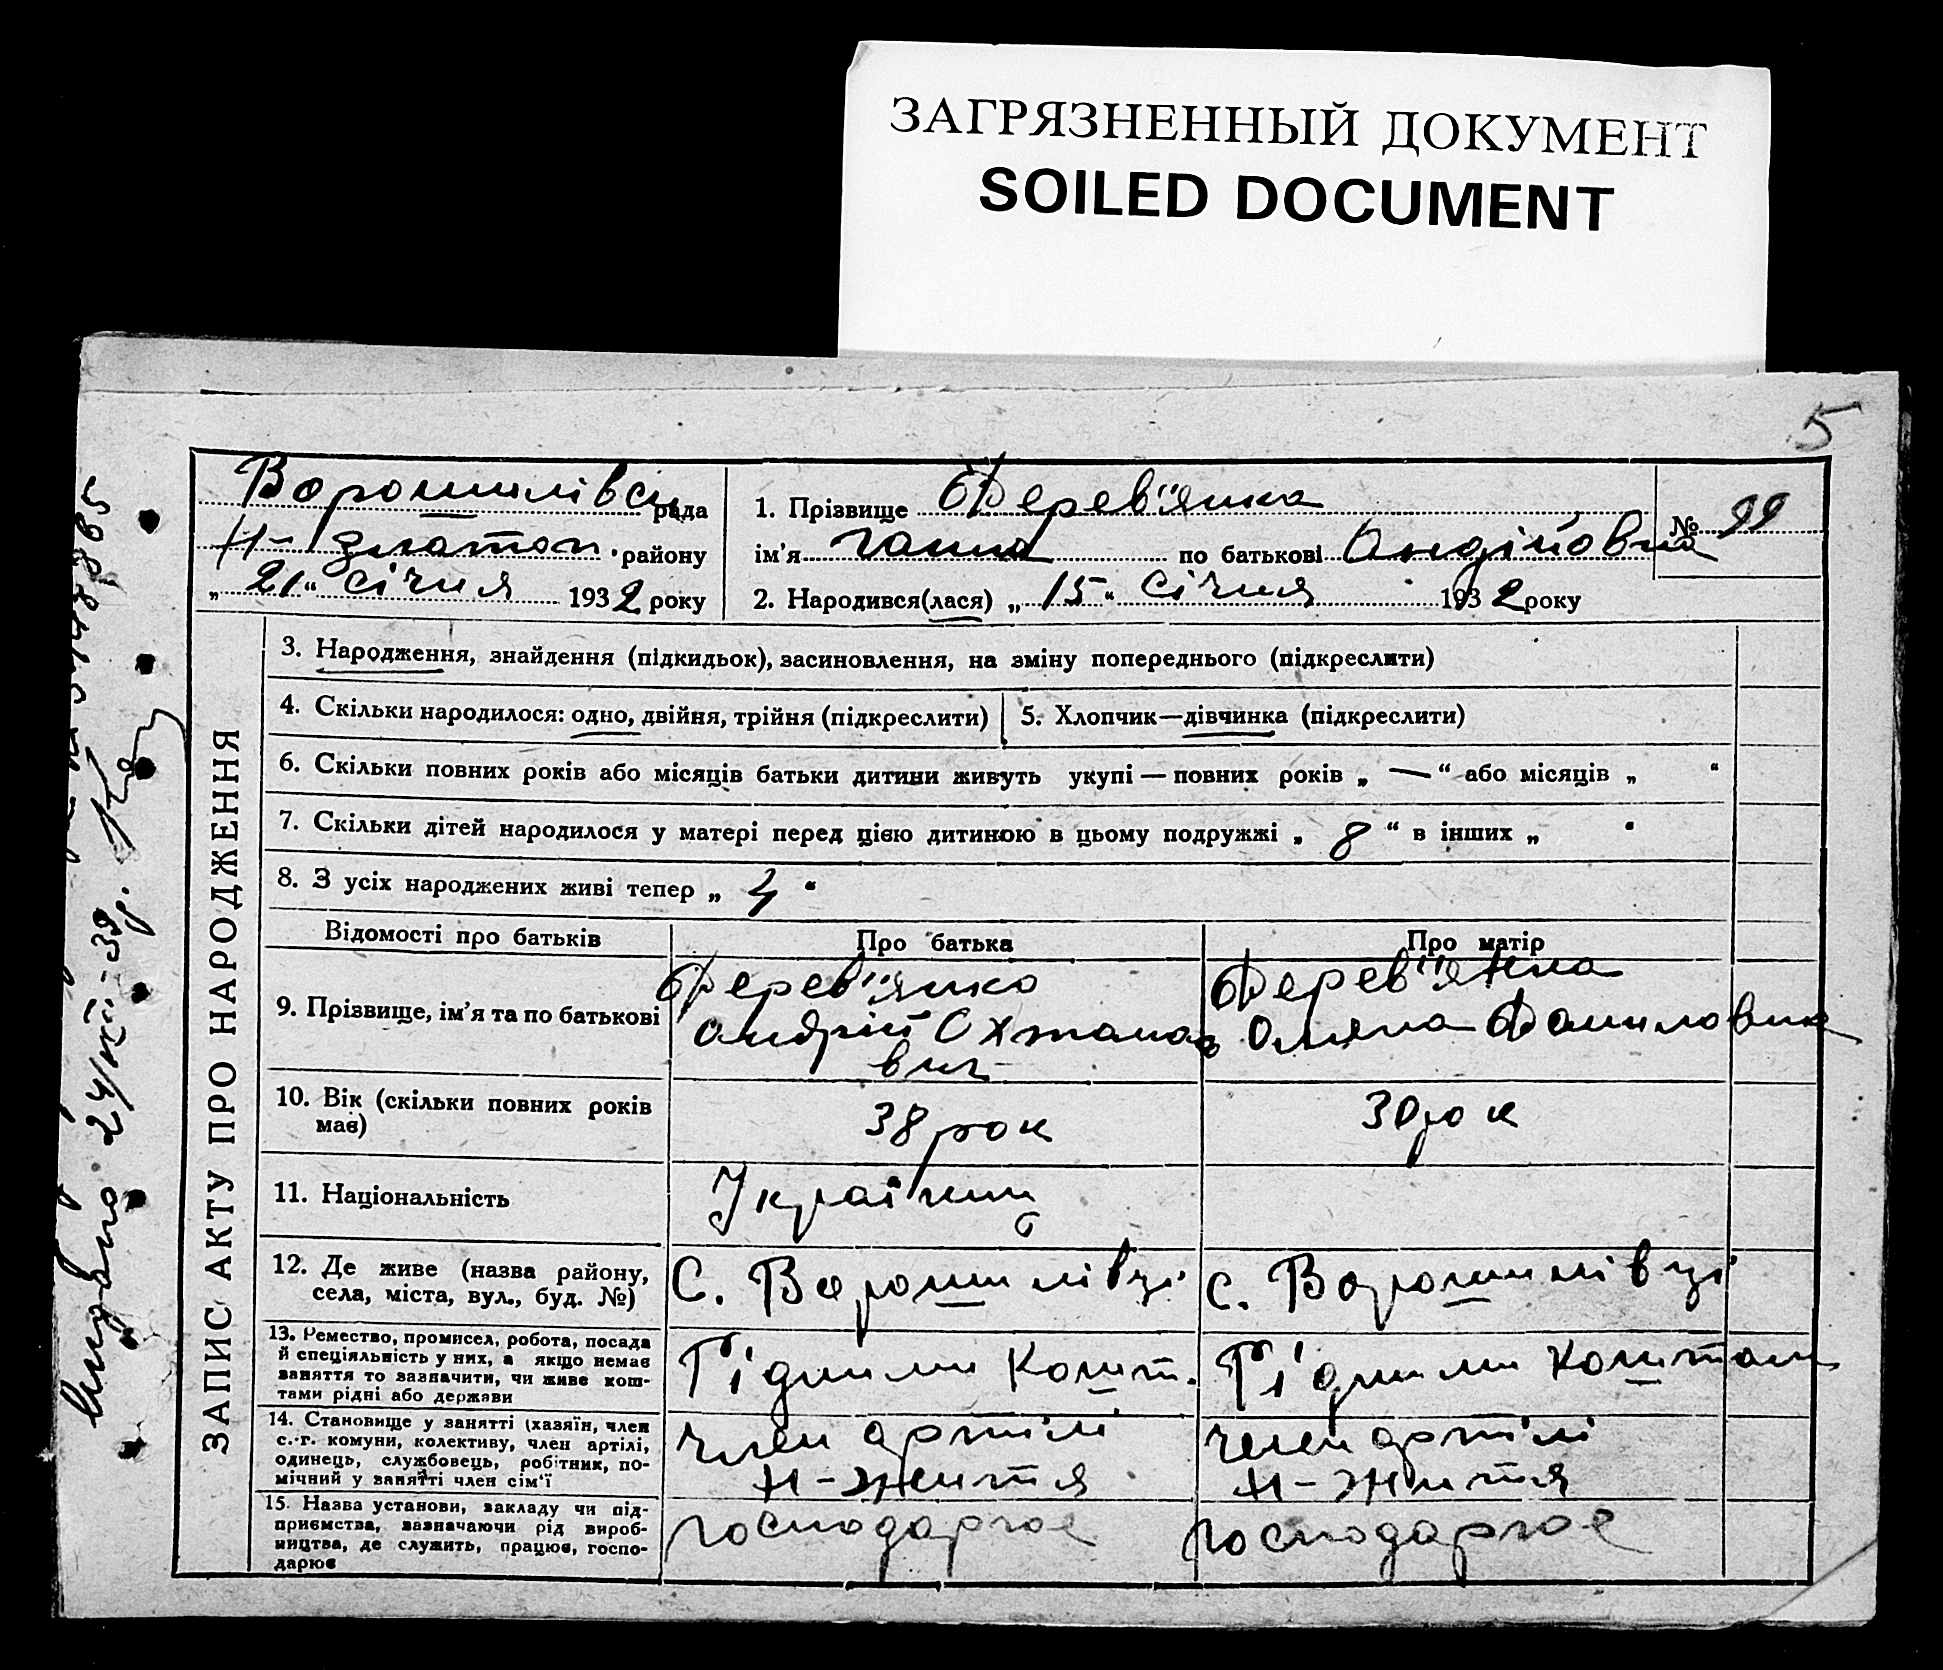 ЗАГРЯЗНЕННЫЙ ДОКУМЕНТ
SOILED DOCUMENT
5
Ворошилівськ рада
Н-Златоп. району
„ 21 “ січня 1932 року
1. Прізвище Дерев"янка
ім'я Ганна по батькові Андійовна
№ 99
2. Народився(лася) „ 15 “ Січня 1932 року
ЗАПИС АКТУ ПРО НАРОДЖЕННЯ
3. Народження, знайдення (підкидьок), засиновлення, на зміну попереднього (підкреслити)
4. Скільки народилося: одно, двійня, трійня (підкреслити)
5. Хлопчик—дівчинка (підкреслити)
6. Скільки повних років або місяців батьки дитини живуть укупі — повних років „ — “ або місяців „ “
7. Скільки дітей народилося у матері перед цією дитиною в цьому подружжі „ 8 “ в інших „ “
8. З усіх народжених живі тепер „ 4 “
Відомості про батьків Про батька Про матір
9. Прізвище, ім'я та по батькові
Дерев"янко
Андрій Охтанао
вич
Дерев"янка
Оляна Даниловна
10. Вік (скільки повних років
має)
38 рок
30 рок
11. Національність
Українц
12. Де живе (назва району,
села, міста, вул., буд. №)
С. Ворошилівці
с. Ворошилівці
13. Ремество, промисел, робота, посада
й спеціяльність у них, а якщо немає
заняття то зазначити, чи живе кош-
тами рідні або держави
Рідними Кошт.
Рідними Коштами
14. Становище у занятті (хазяїн, член
с.-г. комуни, колективу, член артілі,
одинець, службовець, робітник, по-
мічний у занятті член сім'ї
член артілі
Н-життя
член артілі
Н-життя
15. Назва установи, закладу чи під-
приємства, зазначаючи рід вироб-
ництва, де служить, працює, госпо-
дарює
господарює
господарює
Видано 24/XII-39р.